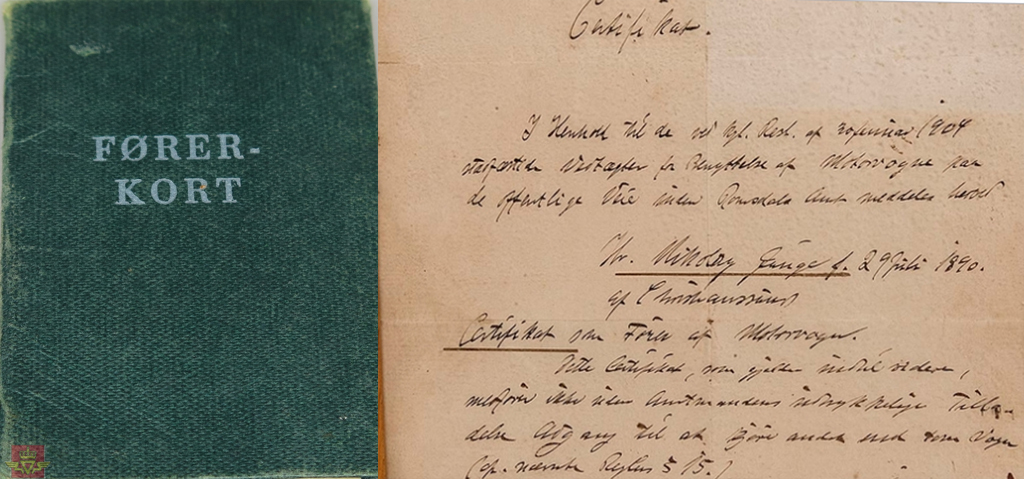 FØRER-
KORT
Certifikat.
I Henhold til de ved Kgl. Resl. af 1904
Vedtægter for Benyttelse af Motorvogne paa
de offentlige Veie inden Romsdals Amt meddeles herved
Hr. Nikolay f. 29 Juli 1890.
af Christianssund
Certifikat som Fører af Motorvogn.
Dette Certifikat, som gjelder indtil videre,
medfører ikke uden Amtmandens udtrykkelige Tilla-
delse Adgang til at kjøre anden end Vogn
(cfr. nævnte Regler § 15.)